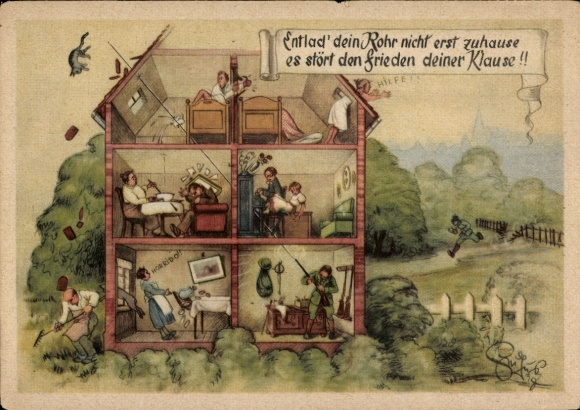 Entlad' dein Rohr nicht erst zuhause
es stört den Frieden deiner Klause!!
HILFE!!
HORRIDO!!